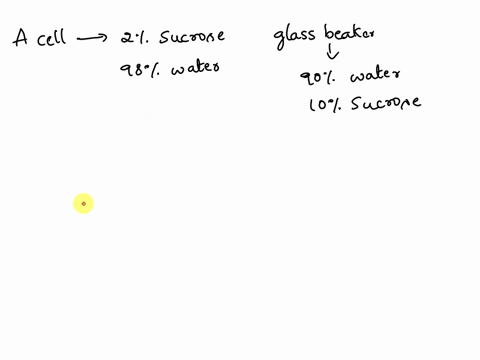 A cell → 2% Sucrose
98% water
glass beaker
↓
90% water
10% Sucrose